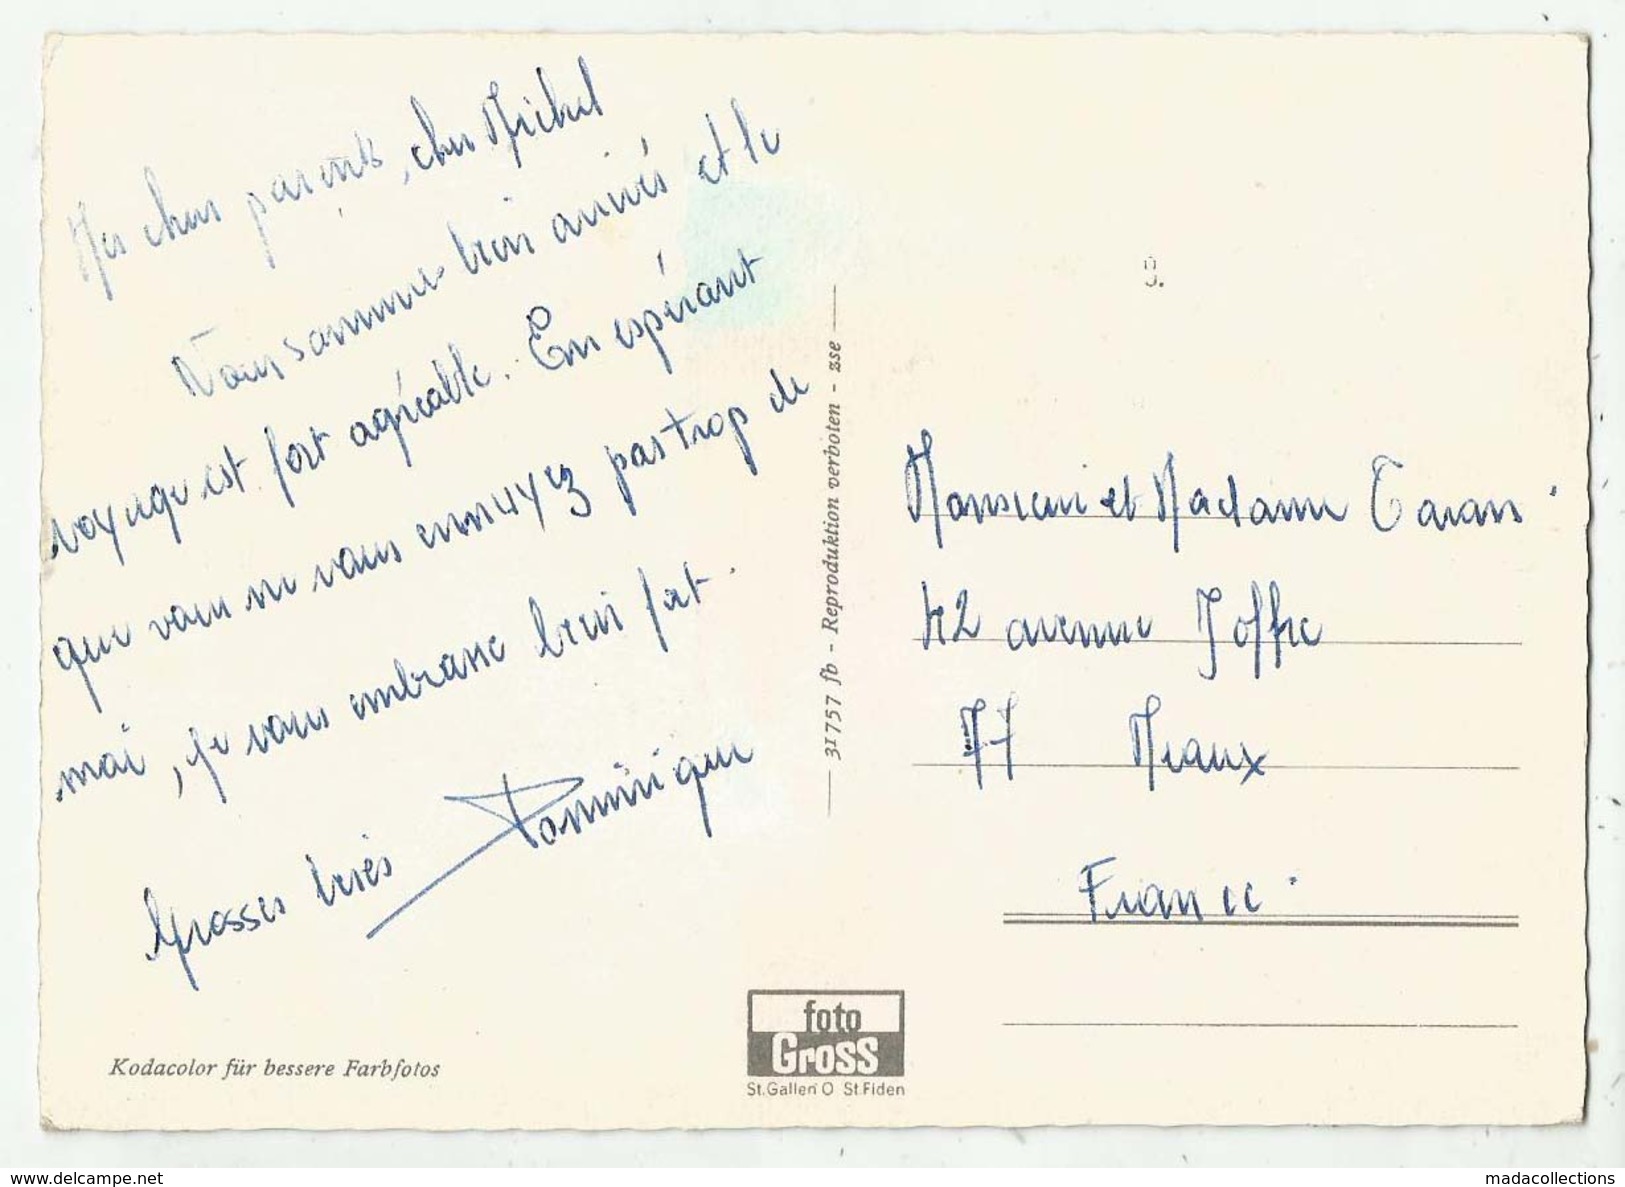 Mes chers parents, cher Michel
Nous sommes bien arrivés et le
voyage est fort agréable. En espérant
que vous ne vous ennuyez pas trop de
moi, je vous embrasse bien fort.
Grosses bises Dominique
Kodacolor für bessere Farbfotos
31757 fb - Reproduktion verboten - zse
foto
Gross
St.Gallen O St.Fiden
9.
Monsieur et Madame Taran
42 avenue Joffre
77 Meaux
France.
www.delcampe.net
madacollections